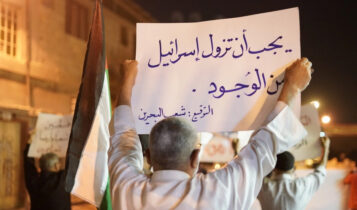 يجب أن تزول إسرائيل
من الوُجُود .
التوقيع : شعب البحرين